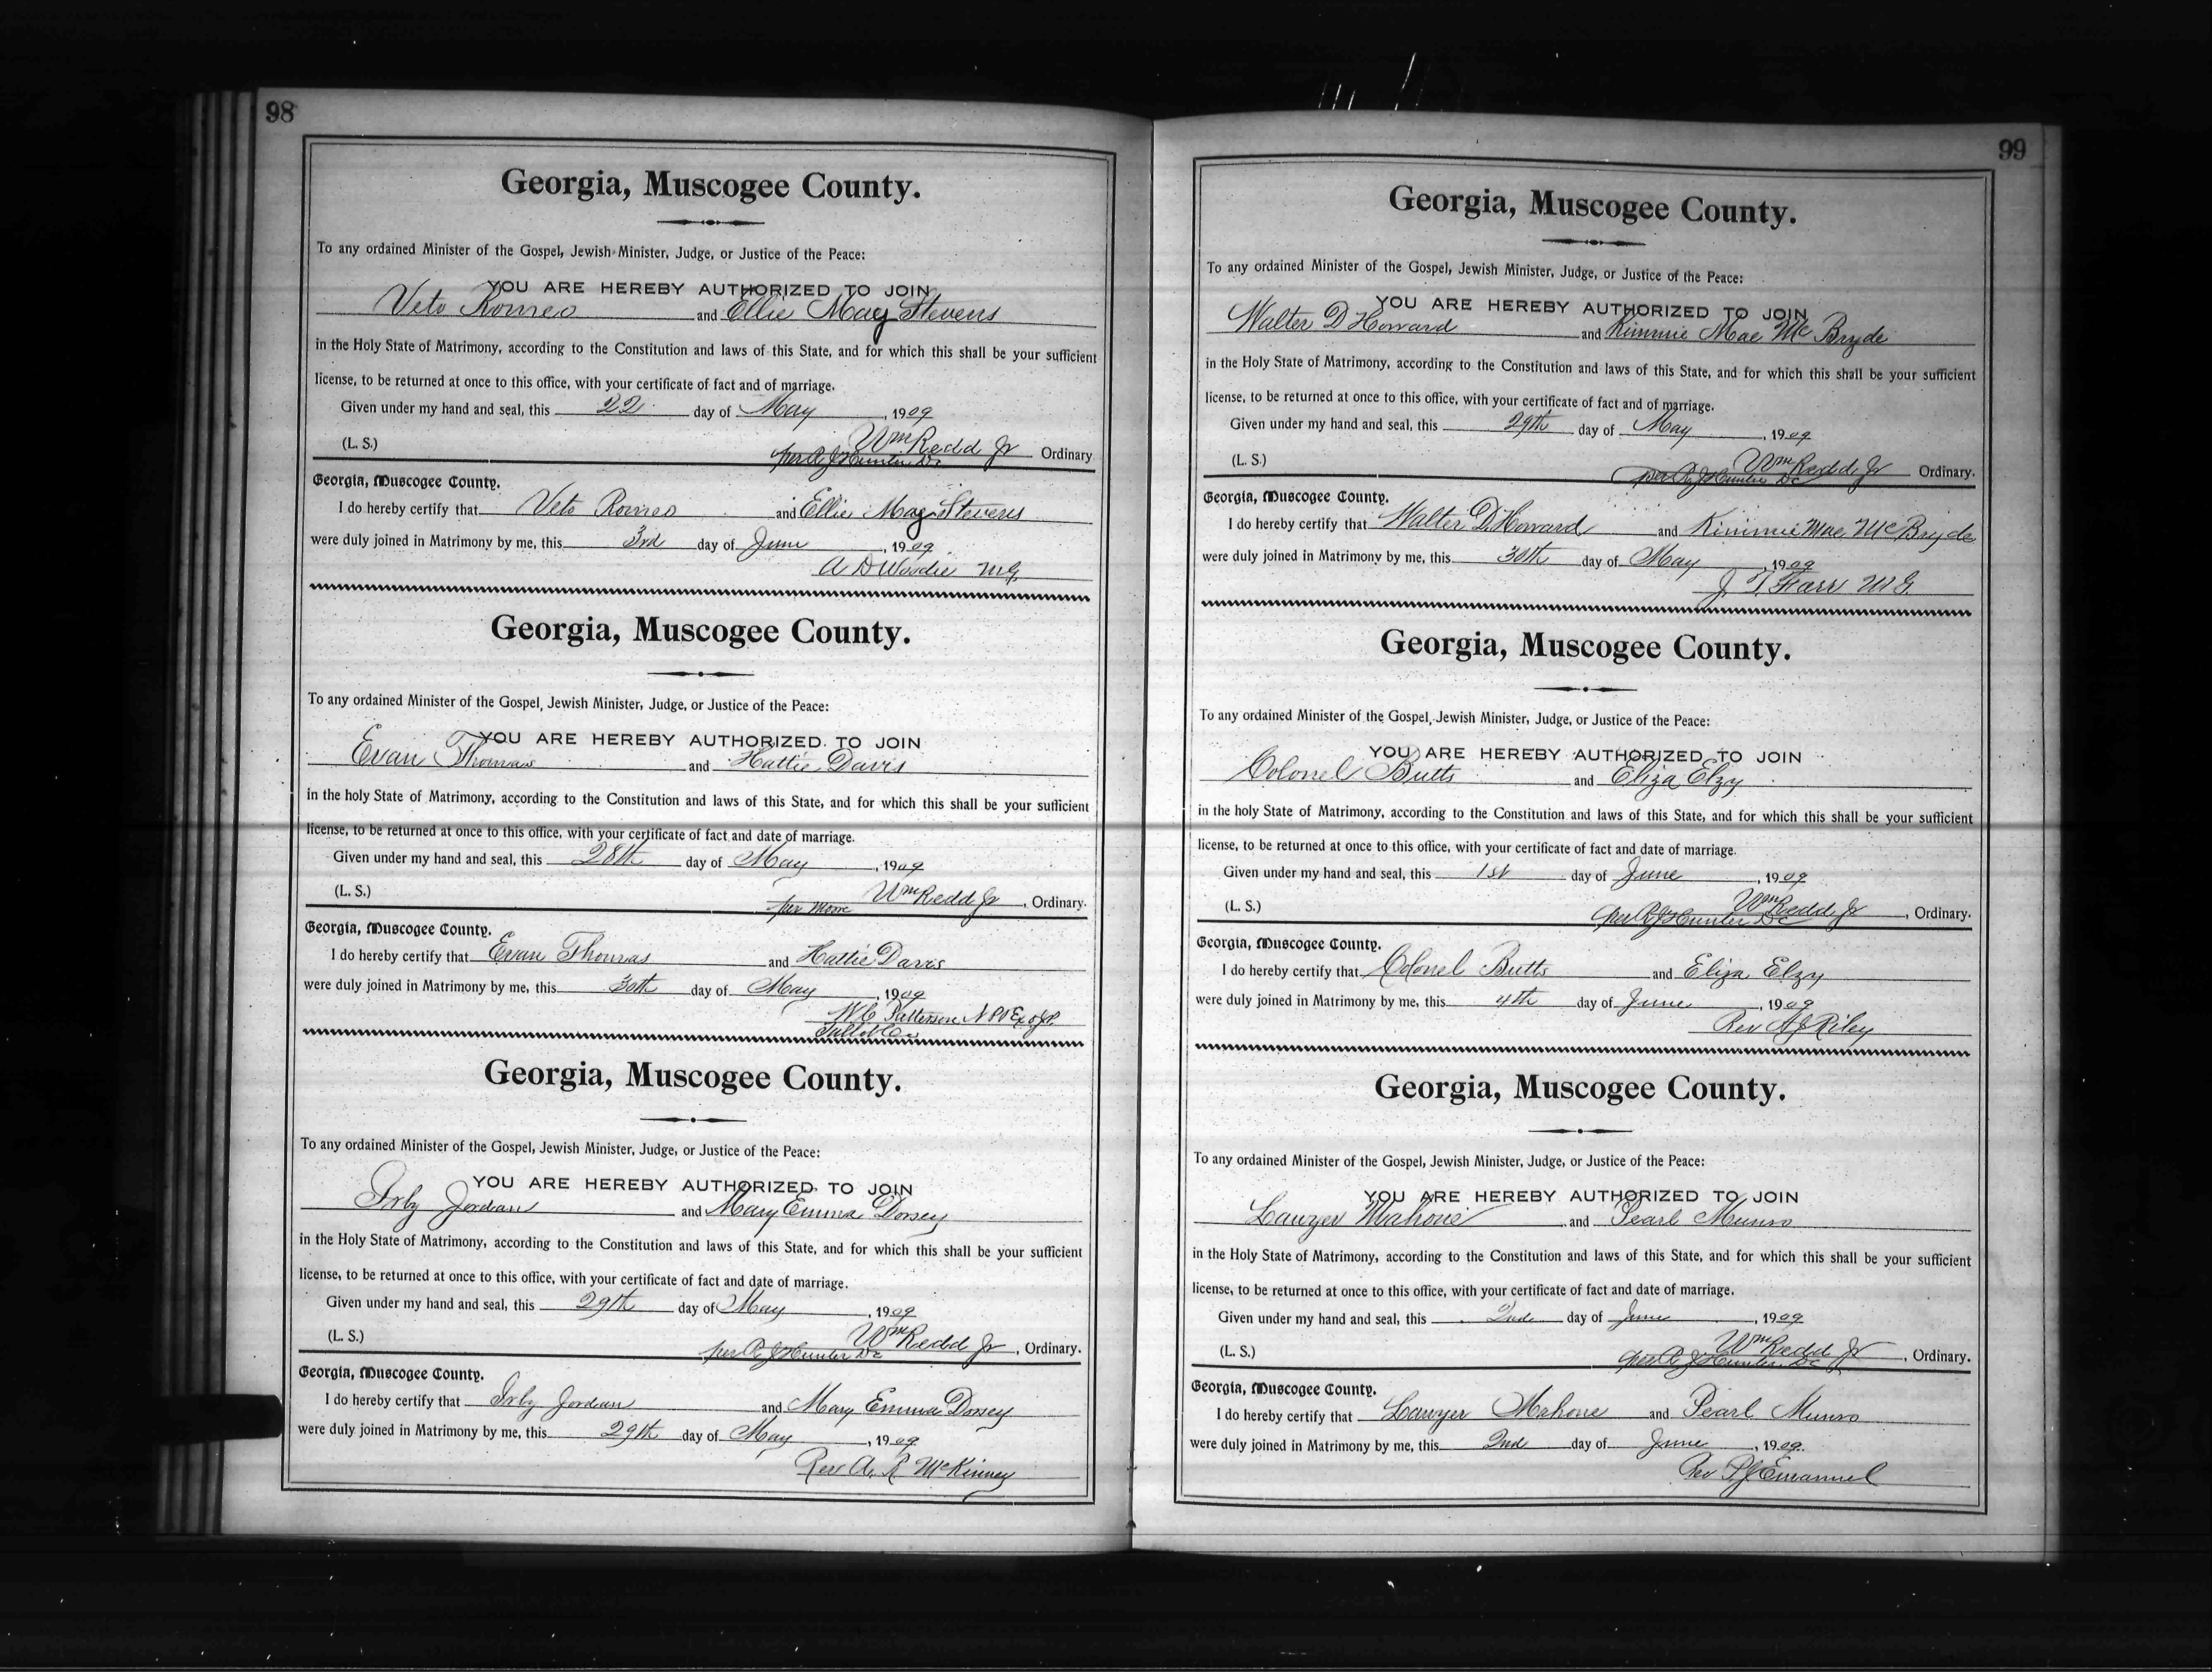 98
Georgia, Muscogee County.
To any ordained Minister of the Gospel, Jewish Minister, Judge, or Justice of the Peace:
YOU ARE HEREBY AUTHORIZED TO JOIN
Veto Romeo and Ellie May Stevens
in the Holy State of Matrimony, according to the Constitution and laws of this State, and for which this shall be your sufficient
license, to be returned at once to this office, with your certificate of fact and of marriage.
Given under my hand and seal, this 22 day of May, 1909
(L. S.) Wm Redd Jr Ordinary
per R J Hunter DC
Georgia, Muscogee County.
I do hereby certify that Veto Romeo and Ellie May Stevens
were duly joined in Matrimony by me, this 3rd day of June, 1909
A D Woodie MG
Georgia, Muscogee County.
To any ordained Minister of the Gospel, Jewish Minister, Judge, or Justice of the Peace:
YOU ARE HEREBY AUTHORIZED TO JOIN
Evan Thomas and Hattie Davis
in the holy State of Matrimony, according to the Constitution and laws of this State, and for which this shall be your sufficient
license, to be returned at once to this office, with your certificate of fact and date of marriage.
Given under my hand and seal, this 28th day of May, 1909
(L. S.) Wm Redd Jr, Ordinary.
per Moore
Georgia, Muscogee County.
I do hereby certify that Evan Thomas and Hattie Davis
were duly joined in Matrimony by me, this 30th day of May, 1909
W C Patterson N P & Ex of J.P.
Talbot Co
Georgia, Muscogee County.
To any ordained Minister of the Gospel, Jewish Minister, Judge, or Justice of the Peace:
YOU ARE HEREBY AUTHORIZED TO JOIN
Irby Jordan and Mary Emma Dorsey
in the Holy State of Matrimony, according to the Constitution and laws of this State, and for which this shall be your sufficient
license, to be returned at once to this office, with your certificate of fact and date of marriage.
Given under my hand and seal, this 29th day of May, 1909
(L. S.) Wm Redd Jr, Ordinary.
per R J Hunter DC
Georgia, Muscogee County.
I do hereby certify that Irby Jordan and Mary Emma Dorsey
were duly joined in Matrimony by me, this 29th day of May, 1909
Rev A. R McKinney
99
Georgia, Muscogee County.
To any ordained Minister of the Gospel, Jewish Minister, Judge, or Justice of the Peace:
YOU ARE HEREBY AUTHORIZED TO JOIN
Walter D Howard and Kimmie Mae McBryde
in the Holy State of Matrimony, according to the Constitution and laws of this State, and for which this shall be your sufficient
license, to be returned at once to this office, with your certificate of fact and of marriage.
Given under my hand and seal, this 29th day of May, 1909
(L. S.) Wm Redd Jr Ordinary.
per R J Hunter DC
Georgia, Muscogee County.
I do hereby certify that Walter D. Howard and Kimmie Mae McBryde
were duly joined in Matrimony by me, this 30th day of May, 1909
J T Farr M G.
Georgia, Muscogee County.
To any ordained Minister of the Gospel, Jewish Minister, Judge, or Justice of the Peace:
YOU ARE HEREBY AUTHORIZED TO JOIN
Colonel Butts and Eliza Elzy
in the holy State of Matrimony, according to the Constitution and laws of this State, and for which this shall be your sufficient
license, to be returned at once to this office, with your certificate of fact and date of marriage.
Given under my hand and seal, this 1st day of June, 1909
(L. S.) Wm Redd Jr, Ordinary.
per R J Hunter DC
Georgia, Muscogee County.
I do hereby certify that Colonel Butts and Eliza Elzy
were duly joined in Matrimony by me, this 4th day of June, 1909
Rev A J Riley
Georgia, Muscogee County.
To any ordained Minister of the Gospel, Jewish Minister, Judge, or Justice of the Peace:
YOU ARE HEREBY AUTHORIZED TO JOIN
Lawyer Mahone and Pearl Munro
in the Holy State of Matrimony, according to the Constitution and laws of this State, and for which this shall be your sufficient
license, to be returned at once to this office, with your certificate of fact and date of marriage.
Given under my hand and seal, this 2nd day of June, 1909
(L. S.) Wm Redd Jr, Ordinary.
per R J Hunter DC
Georgia, Muscogee County.
I do hereby certify that Lawyer Mahone and Pearl Munro
were duly joined in Matrimony by me, this 2nd day of June, 1909.
Rev P J Emanuel